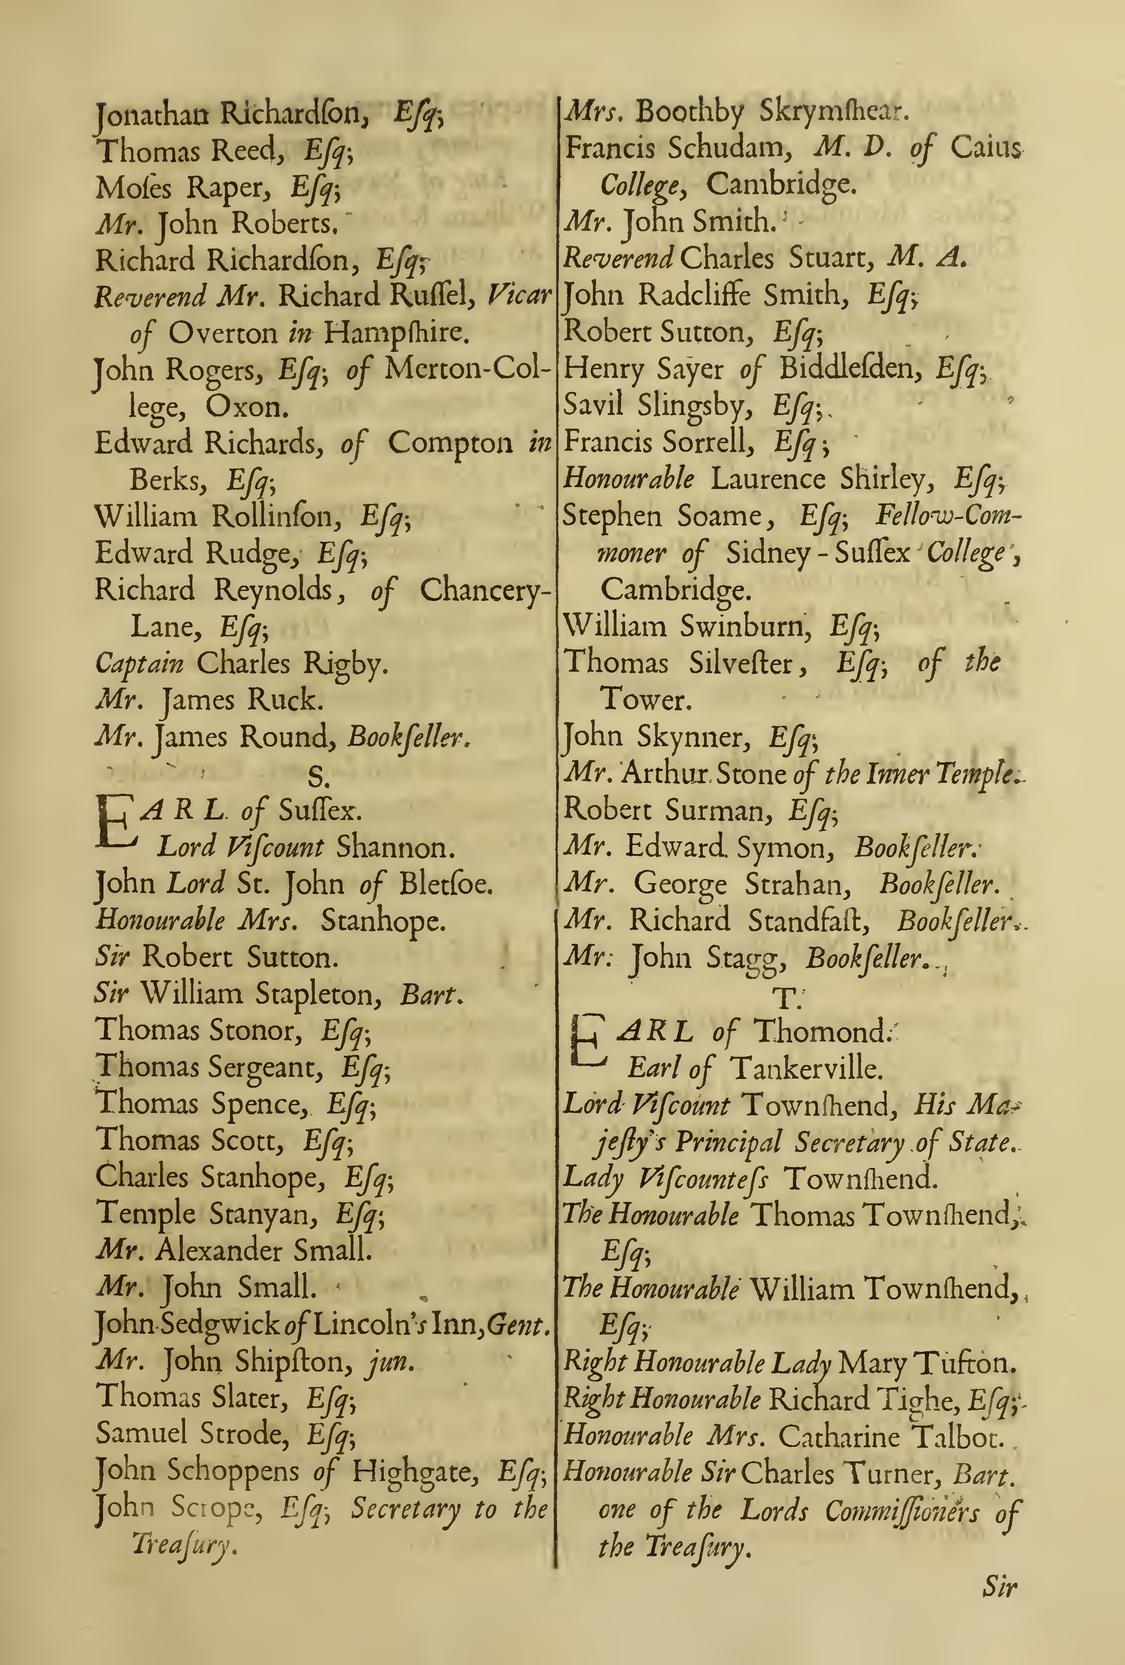 Jonathan Richardſon, Eſq;
Thomas Reed, Eſq;
Moſes Raper, Eſq;
Mr. John Roberts.
Richard Richardſon, Eſq;
Reverend Mr. Richard Ruſſel, Vicar
of Overton in Hampſhire.
John Rogers, Eſq; of Merton-Col-
lege, Oxon.
Edward Richards, of Compton in
Berks, Eſq;
William Rollinſon, Eſq;
Edward Rudge, Eſq;
Richard Reynolds, of Chancery-
Lane, Eſq;
Captain Charles Rigby.
Mr. James Ruck.
Mr. James Round, Bookſeller.
S.
EARL of Suſſex.
Lord Viſcount Shannon.
John Lord St. John of Bletſoe.
Honourable Mrs. Stanhope.
Sir Robert Sutton.
Sir William Stapleton, Bart.
Thomas Stonor, Eſq;
Thomas Sergeant, Eſq;
Thomas Spence, Eſq;
Thomas Scott, Eſq;
Charles Stanhope, Eſq;
Temple Stanyan, Eſq;
Mr. Alexander Small.
Mr. John Small.
John Sedgwick of Lincoln's Inn, Gent.
Mr. John Shipſton, jun.
Thomas Slater, Eſq;
Samuel Strode, Eſq;
John Schoppens of Highgate, Eſq;
John Scrope, Eſq; Secretary to the
Treaſury.
Mrs. Boothby Skrymſhear.
Francis Schudam, M. D. of Caius
College, Cambridge.
Mr. John Smith.
Reverend Charles Stuart, M. A.
John Radcliffe Smith, Eſq;
Robert Sutton, Eſq;
Henry Sayer of Biddleſden, Eſq;
Savil Slingsby, Eſq;
Francis Sorrell, Eſq;
Honourable Laurence Shirley, Eſq;
Stephen Soame, Eſq; Fellow-Com-
moner of Sidney-Suſſex College,
Cambridge.
William Swinburn, Eſq;
Thomas Silveſter, Eſq; of the
Tower.
John Skynner, Eſq;
Mr. Arthur Stone of the Inner Temple.
Robert Surman, Eſq;
Mr. Edward Symon, Bookſeller.
Mr. George Strahan, Bookſeller.
Mr. Richard Standfaſt, Bookſeller.
Mr. John Stagg, Bookſeller.
T.
EARL of Thomond.
Earl of Tankerville.
Lord Viſcount Townſhend, His Ma-
jeſty's Principal Secretary of State.
Lady Viſcounteſs Townſhend.
The Honourable Thomas Townſhend,
Eſq;
The Honourable William Townſhend,
Eſq;
Right Honourable Lady Mary Tufton.
Right Honourable Richard Tighe, Eſq;
Honourable Mrs. Catharine Talbot.
Honourable Sir Charles Turner, Bart.
one of the Lords Commiſſioners of
the Treaſury.
Sir